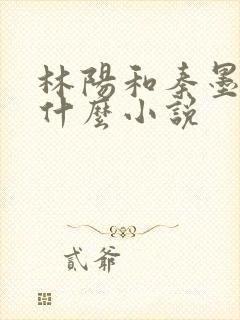 林陽和秦墨
什麼小説
貳爺